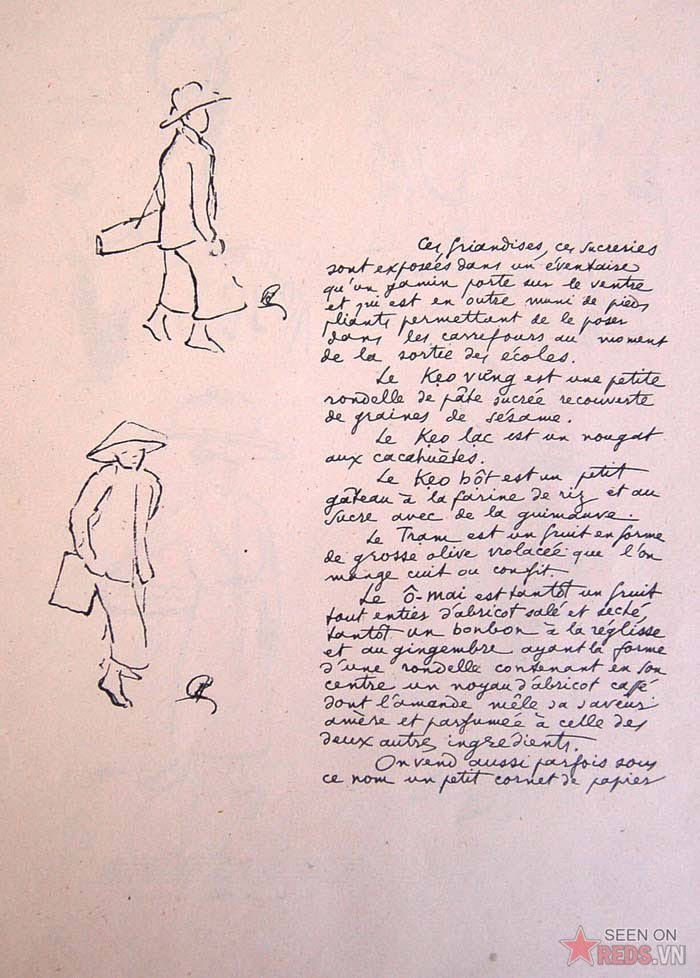 Ces friandises, ces sucreries
sont exposées dans un éventaire
qu'un gamin porte sur le ventre
et qui est en outre muni de pieds
pliants permettant de le poser
dans les carrefours au moment
de la sortie des écoles.
Le Kẹo vừng est une petite
rondelle de pâte sucrée recouverte
de graines de sésame.
Le Kẹo lạc est un nougat
aux cacahuètes.
Le Kẹo bột est un petit
gâteau à la farine de riz et au
sucre avec de la guimauve.
Le Tram est un fruit en forme
de grosse olive violacée que l'on
mange cuit ou confit.
Le Ô-mai est tantôt un fruit
tout entier d'abricot salé et séché
tantôt un bonbon à la réglisse
et au gingembre ayant la forme
d'une rondelle contenant en son
centre un noyau d'abricot cassé
dont l'amande mêle sa saveur
amère et parfumée à celle des
deux autres ingrédients.
On vend aussi parfois sous
ce nom un petit cornet de papier
SEEN ON
REDS.VN